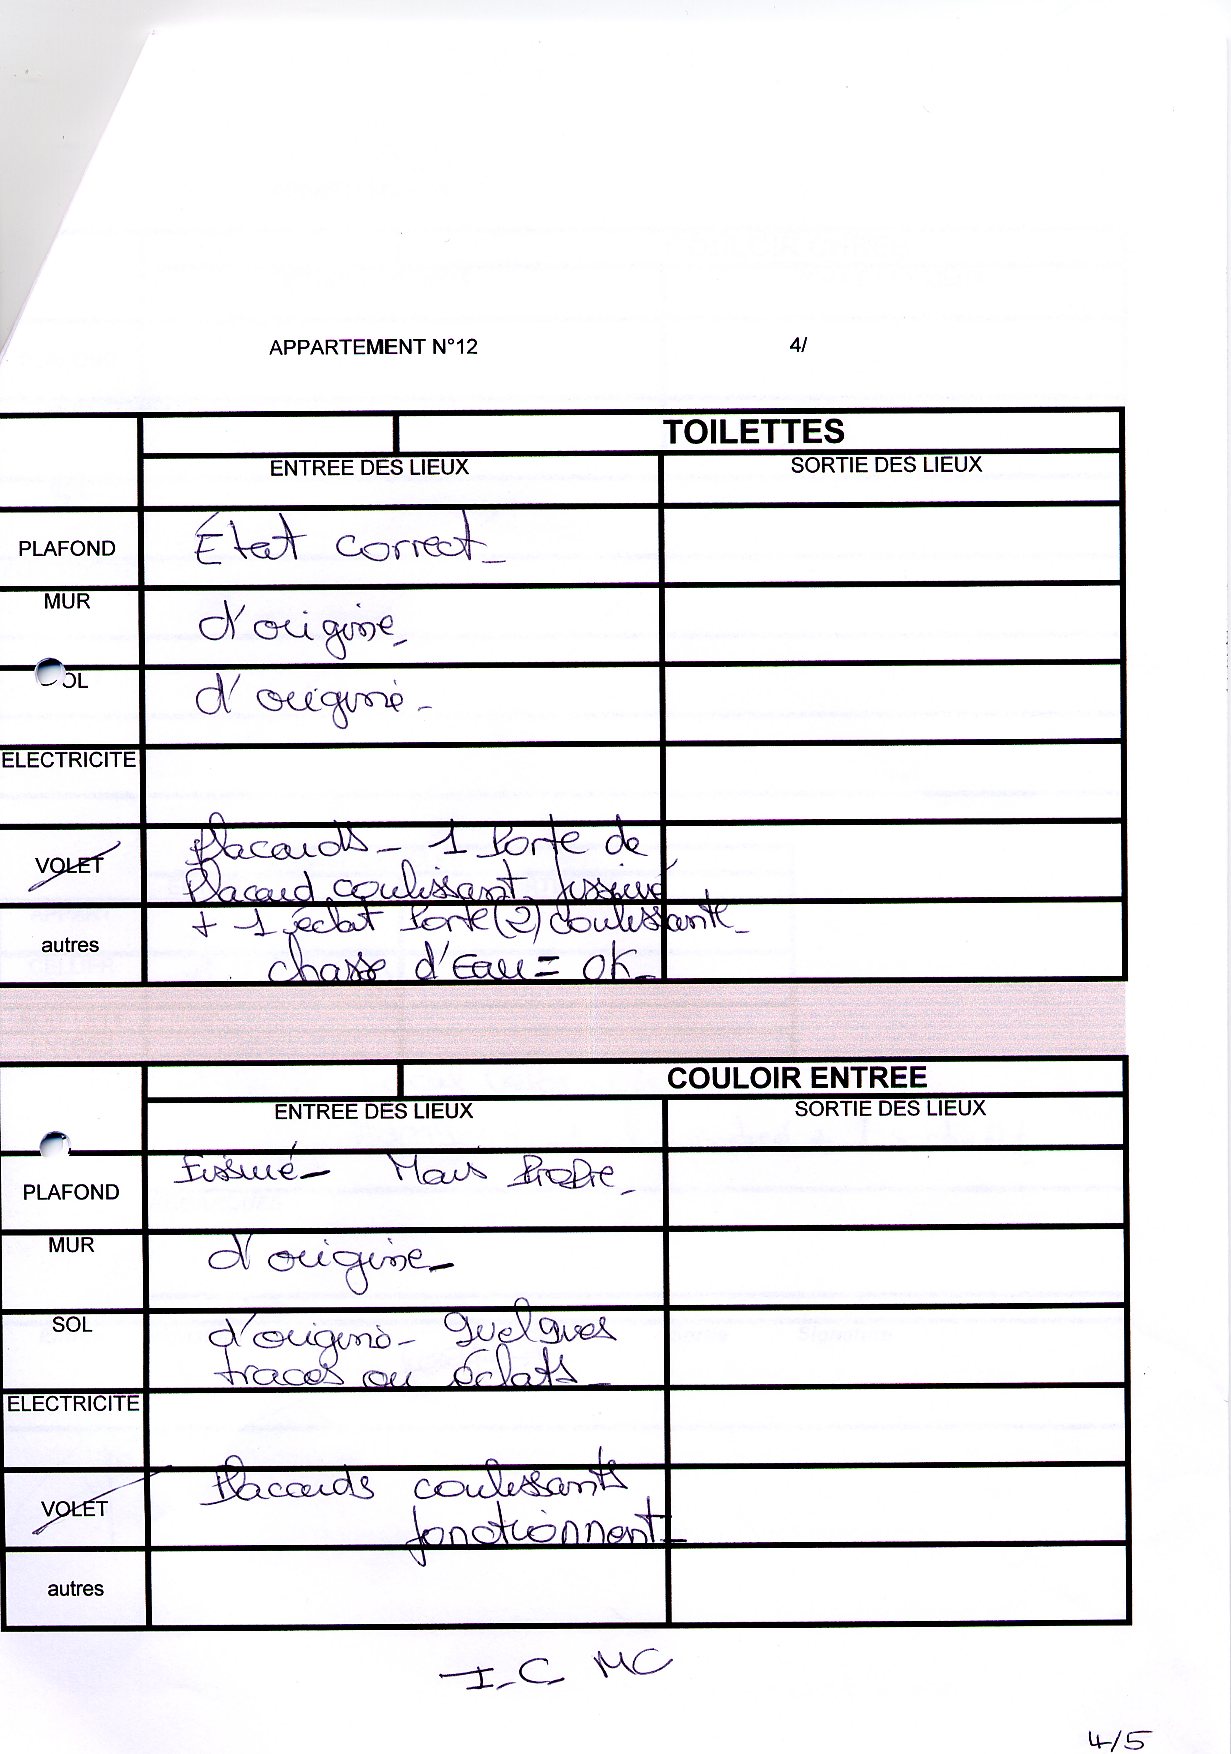 APPARTEMENT N°12 4/
TOILETTES
ENTREE DES LIEUX SORTIE DES LIEUX
PLAFOND Etat correct_
MUR d'origine_
SOL d'origine -
ELECTRICITE
VOLET Placards - 1 Porte de
Placard coulissant
autres + 1 éclat Porte (2) coulissante_
chasse d'Eau = OK_
COULOIR ENTREE
ENTREE DES LIEUX SORTIE DES LIEUX
PLAFOND Mais Propre_
MUR d'origine_
SOL d'origine - Quelques
traces ou éclats_
ELECTRICITE
VOLET Placards coulissants
fonctionnent_
autres
I.C MC
4/5